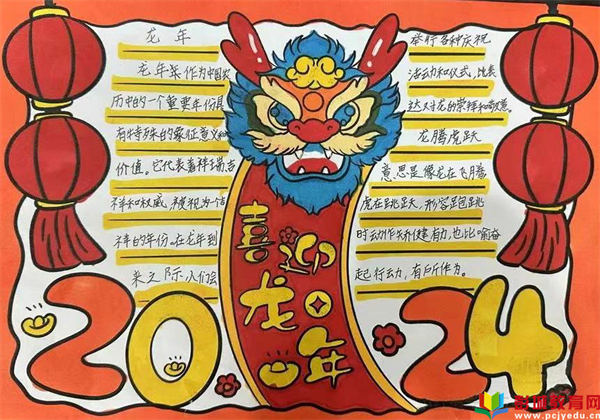 龙年
龙年年作为中国农
历中的一个重要年份具
有特殊的象征意义和
价值。它代表着祥瑞吉
祥和权威,被视为吉
祥的年份。在龙年到
来之际,人们会
举行各种庆祝
活动和仪式,
达对龙的崇拜和敬意。
龙腾虎跃
意思是像龙在飞腾
虎在跳跃。形容跑跳
时动作矫健有力,也比喻奋
起行动,有所作为。
喜迎龙年
2024
教育网
www.pcjyedu.cn